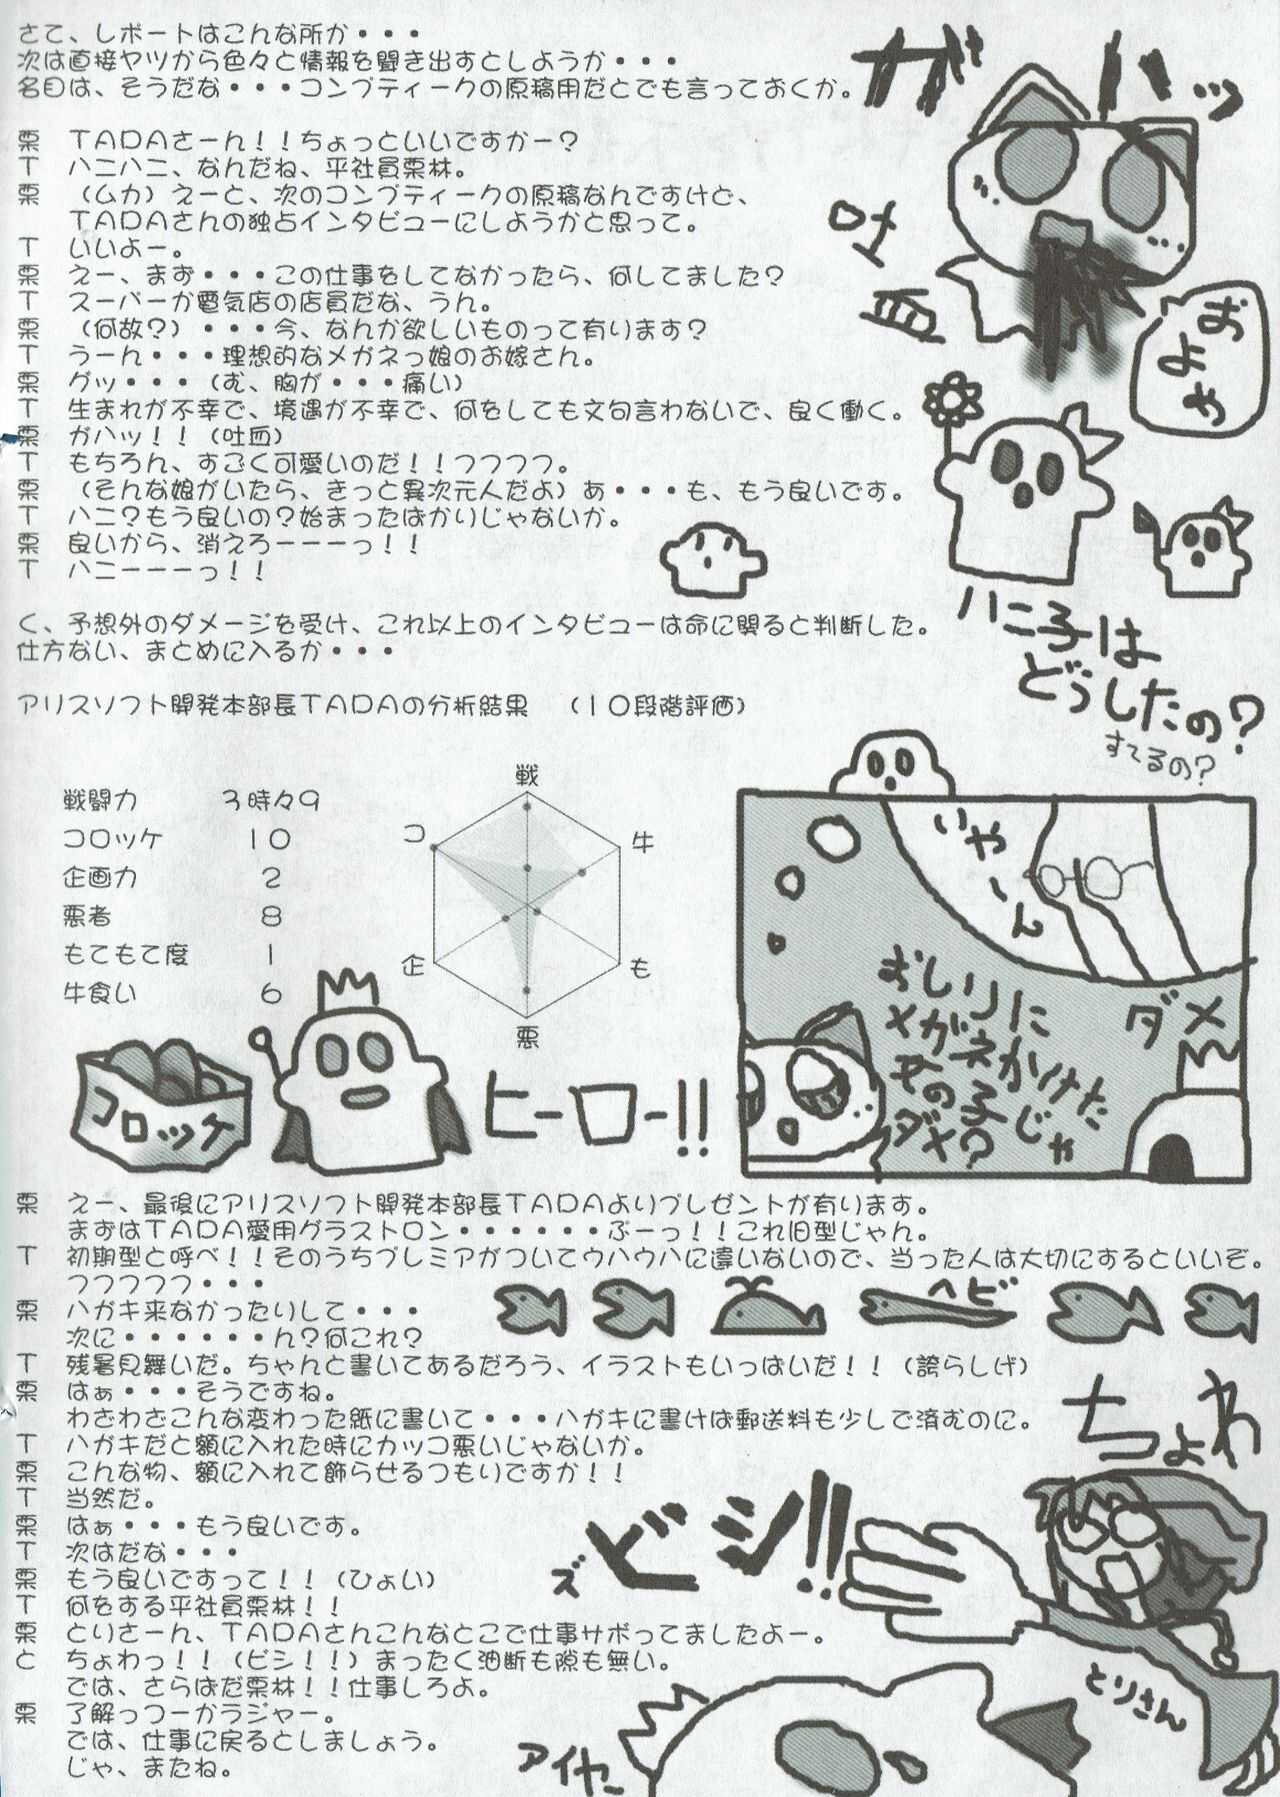 さて、レポートはこんな所か・・・
次は直接ヤツから色々と情報を聞き出すとしようか・・・
名目は、そうだな・・・コンプティークの原稿用だとでも言っておくか。
栗　ＴＡＤＡさーん！！ちょっといいですかー？
Ｔ　ハニハニ、なんだね、平社員栗林。
栗　（ムカ）えーと、次のコンプティークの原稿なんですけど、
ＴＡＤＡさんの独占インタビューにしようかと思って。
Ｔ　いいよー。
栗　えー、まず・・・この仕事をしてなかったら、何してました？
Ｔ　スーパーか電気店の店員だな、うん。
栗　（何故？）・・・今、なんか欲しいものって有ります？
Ｔ　うーん・・・理想的なメガネっ娘のお嫁さん。
栗　グッ・・・（む、胸が・・・痛い）
Ｔ　生まれが不幸で、境遇が不幸で、何をしても文句言わないで、良く働く。
栗　ガハッ！！（吐血）
Ｔ　もちろん、すごく可愛いのだ！！つつつつ。
栗　（そんな娘がいたら、きっと異次元人だよ）あ・・・も、もう良いです。
Ｔ　ハニ？もう良いの？始まったばかりじゃないか。
栗　良いから、消えろーーーっ！！
Ｔ　ハニーーーっ！！
く、予想外のダメージを受け、これ以上のインタビューは命に関ると判断した。
仕方ない、まとめに入るか・・・
アリスソフト開発本部長ＴＡＤＡの分析結果　（１０段階評価）
戦闘力　３時々９
コロッケ　１０
企画力　２
悪者　８
もてもて度　１
牛食い　６
戦
コ
牛
企
も
悪
ガハッ
吐血
およや
ハニ子は
どうしたの？
すてるの？
いやーん
おしりに
メガネかけた
女の子じゃ
ダメ？
ダメ
コロッケ
ヒーロー!!
栗　えー、最後にアリスソフト開発本部長ＴＡＤＡよりプレゼントが有ります。
まずはＴＡＤＡ愛用グラストロン・・・・・・ぶーっ！！これ旧型じゃん。
Ｔ　初期型と呼べ！！そのうちプレミアがついてウハウハに違いないので、当った人は大切にするといいぞ。
つつつつつ・・・
栗　ハガキ来なかったりして・・・
次に・・・・・・ん？何これ？
Ｔ　残暑見舞いだ。ちゃんと書いてあるだろう、イラストもいっぱいだ！！（誇らしげ）
栗　はぁ・・・そうですね。
わざわざこんな変わった紙に書いて・・・ハガキに書けば郵送料も少しで済むのに。
Ｔ　ハガキだと額に入れた時にカッコ悪いじゃないか。
栗　こんな物、額に入れて飾らせるつもりですか！！
Ｔ　当然だ。
栗　はぁ・・・もう良いです。
Ｔ　次はだな・・・
栗　もう良いですって！！（ひょい）
Ｔ　何をする平社員栗林！！
栗　とりさーん、ＴＡＤＡさんこんなとこで仕事サボってましたよー。
と　ちょわっ！！（ビシ！！）まったく油断も隙も無い。
では、さらばだ栗林！！仕事しろよ。
栗　了解っつーかラジャー。
では、仕事に戻るとしましょう。
じゃ、またね。
ヘビ
ちょわ
ズビシ!!
とりさん
アイヤー